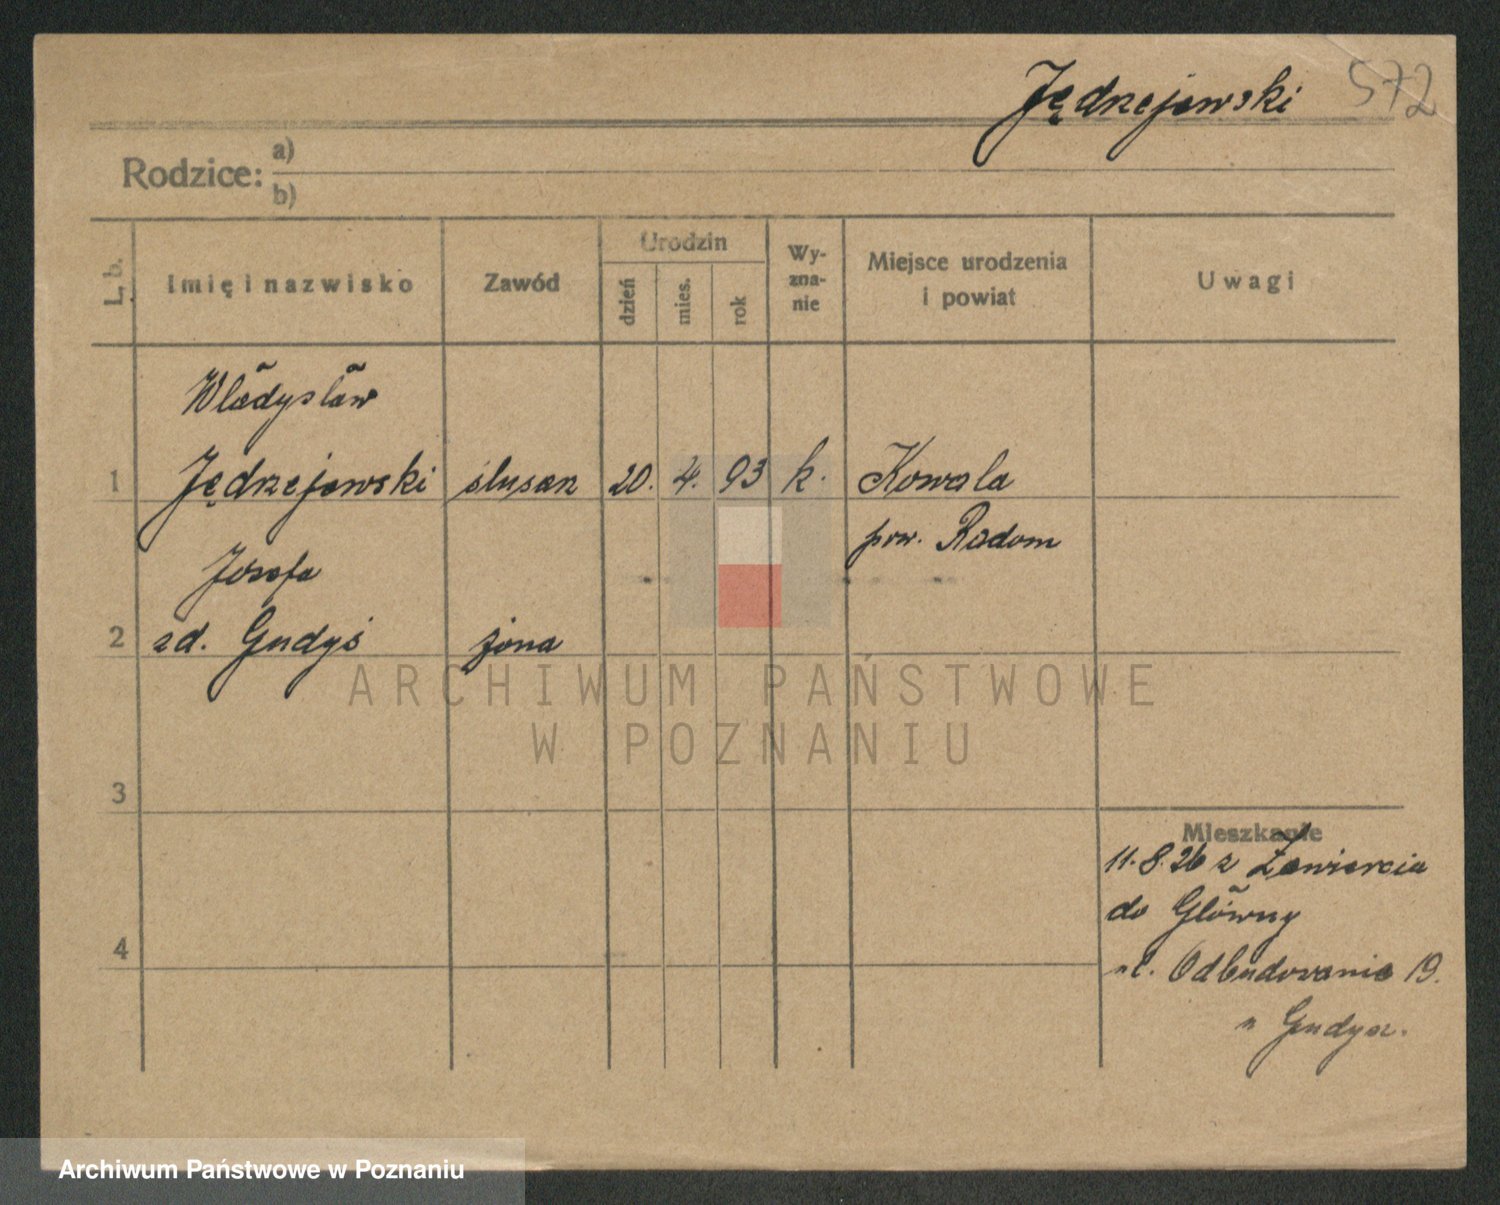 Jędrzejewski 572
Rodzice: a)
b)
L. b. Imię i nazwisko Zawód Urodzin dzień mies. rok Wyznanie Miejsce urodzenia i powiat Uwagi
Władysław
1 Jędrzejewski ślusarz 20. 4. 93 k. Kowala
pow. Radom
Józefa
2 zd. Gudyś żona
ARCHIWUM PAŃSTWOWE
W POZNANIU
3
Mieszkanie
11.8.26 z Zawiercia
do Główny
4
ul. Odbudowanie 19.
u Gudysz.
Archiwum Państwowe w Poznaniu